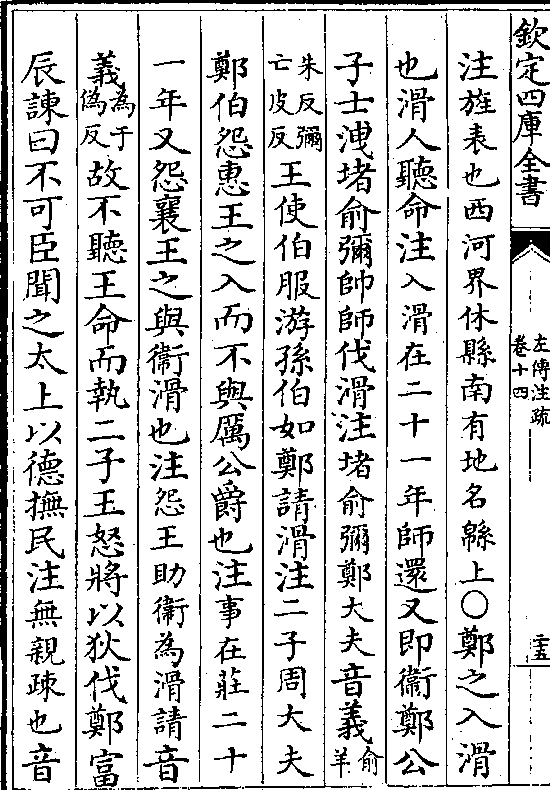 欽定四庫全書
左傳注疏
卷十四
二十五
注旌表也西河界休縣南有地名緜上○鄭之入滑
也滑人聽命注入滑在二十一年師還又即衞鄭公
子士洩堵俞彌帥師伐滑注堵俞彌鄭大夫音義俞羊
朱反彌亡皮反王使伯服游孫伯如鄭請滑注二子周大夫
鄭伯怨惠王之入而不與厲公爵也注事在莊二十
一年又怨襄王之與衞滑也注怨王助衞為滑請音
義為于偽反故不聽王命而執二子王怒將以狄伐鄭富
辰諫曰不可臣聞之太上以德撫民注無親疎也音